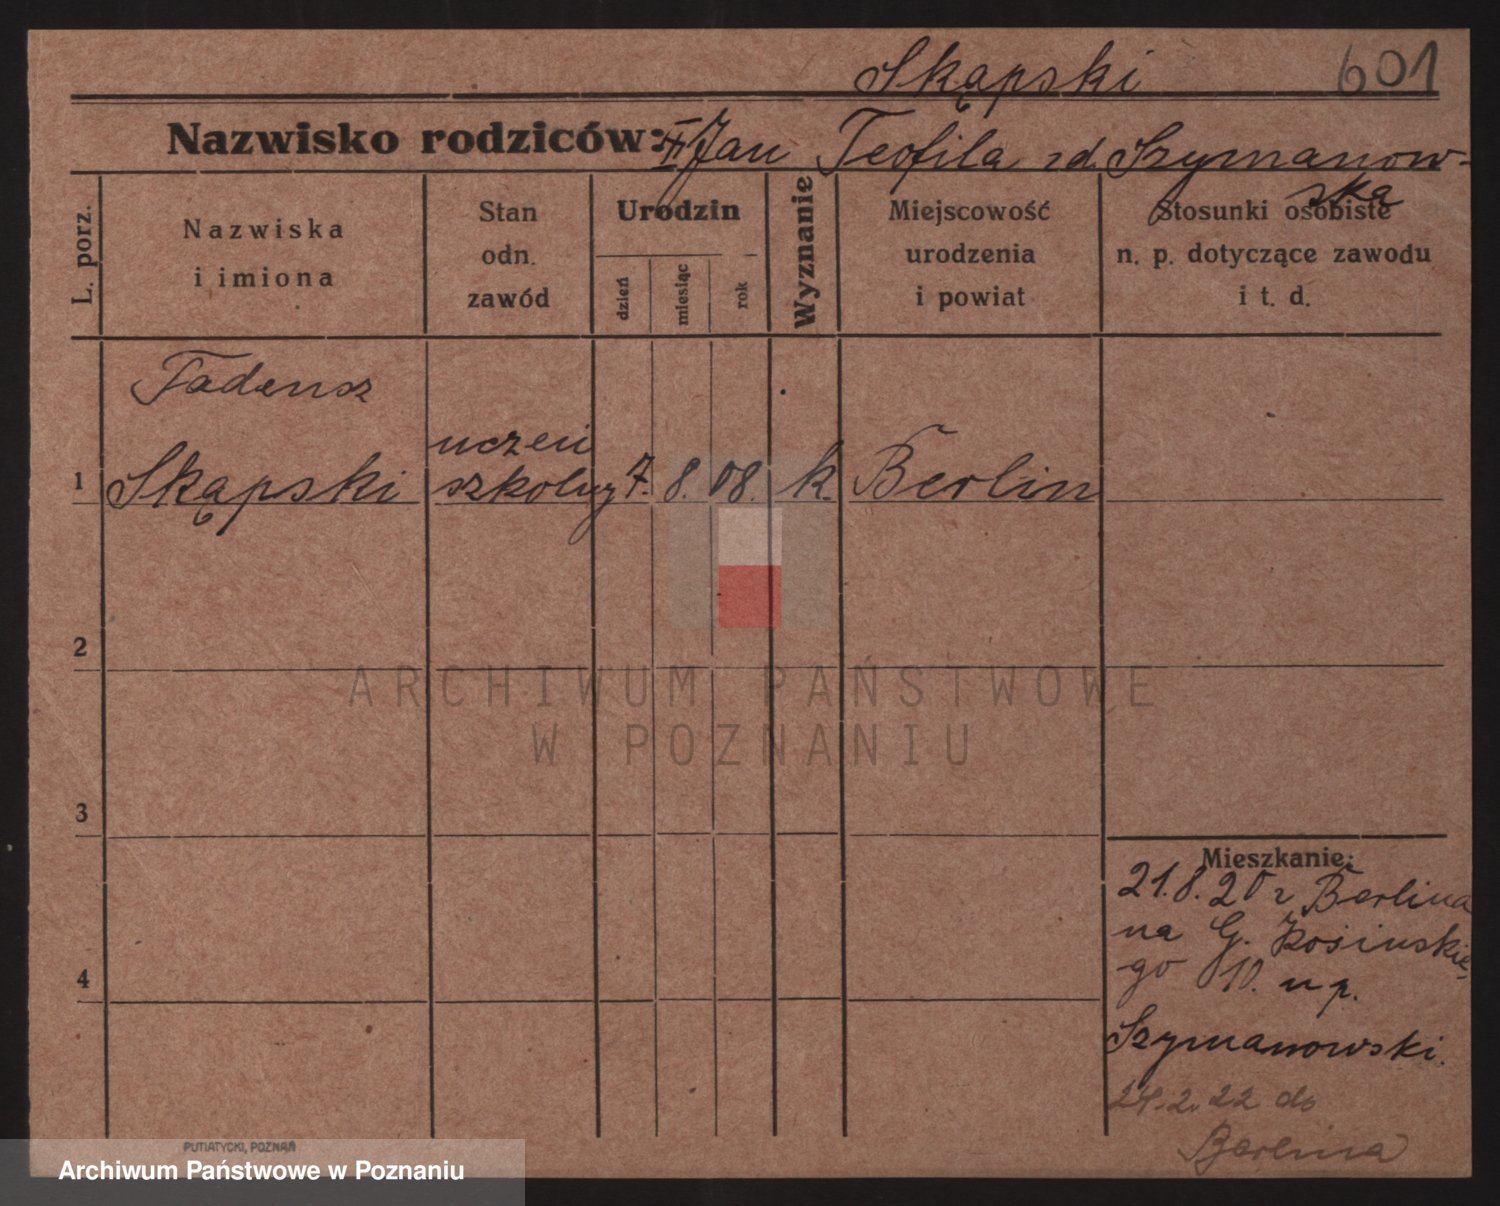 Skąpski 601
Nazwisko rodziców: Jan Teofila zd. Szymanow-
ska
L. porz.
Nazwiska
i imiona
Stan
odn.
zawód
Urodzin
dzień
miesiąc
rok
Wyznanie
Miejscowość
urodzenia
i powiat
Stosunki osobiste
n. p. dotyczące zawodu
i t. d.
Tadeusz
uczeń
1 Skąpski szkolny 7. 8. 08. k. Berlin
2
ARCHIWUM PAŃSTWOWE
W POZNANIU
3
Mieszkanie:
21.8.20 z Berlina
na G. Kosińskie-
4
go 10. u p.
Szymanowski.
24.2.22 do
Berlina
PUTIATYCKI, POZNAŃ
Archiwum Państwowe w Poznaniu